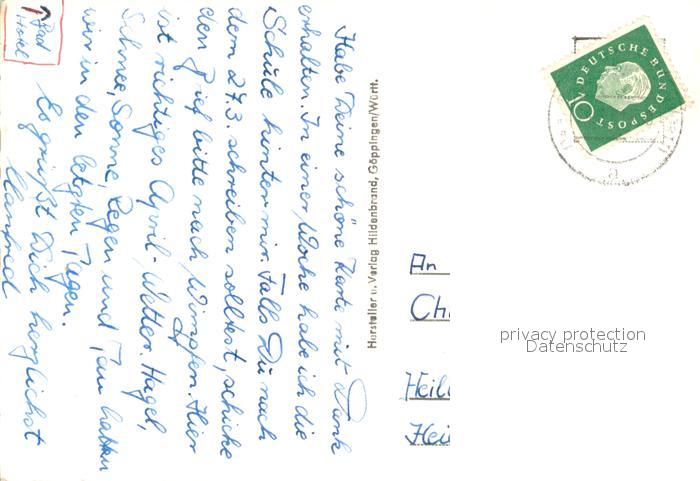 Habe Deine schöne Karte mit Dank
erhalten. In einer Woche habe ich die
Schule hinter mir. Falls Du nach
dem 27.3. schreiben solltest, schicke
den Brief bitte nach Wimpfen. Hier
ist richtiges April-Wetter. Hagel,
Schnee, Sonne, Regen und Tau hatten
wir in den letzten Tagen.
Es grüßt Dich herzlichst
Manfred
Bad
Hotel
Hersteller u. Verlag Hildenbrand, Göppingen/Württ.
DEUTSCHE BUNDESPOST
10
a
An
Ch
Heil
Hei
privacy protection
Datenschutz